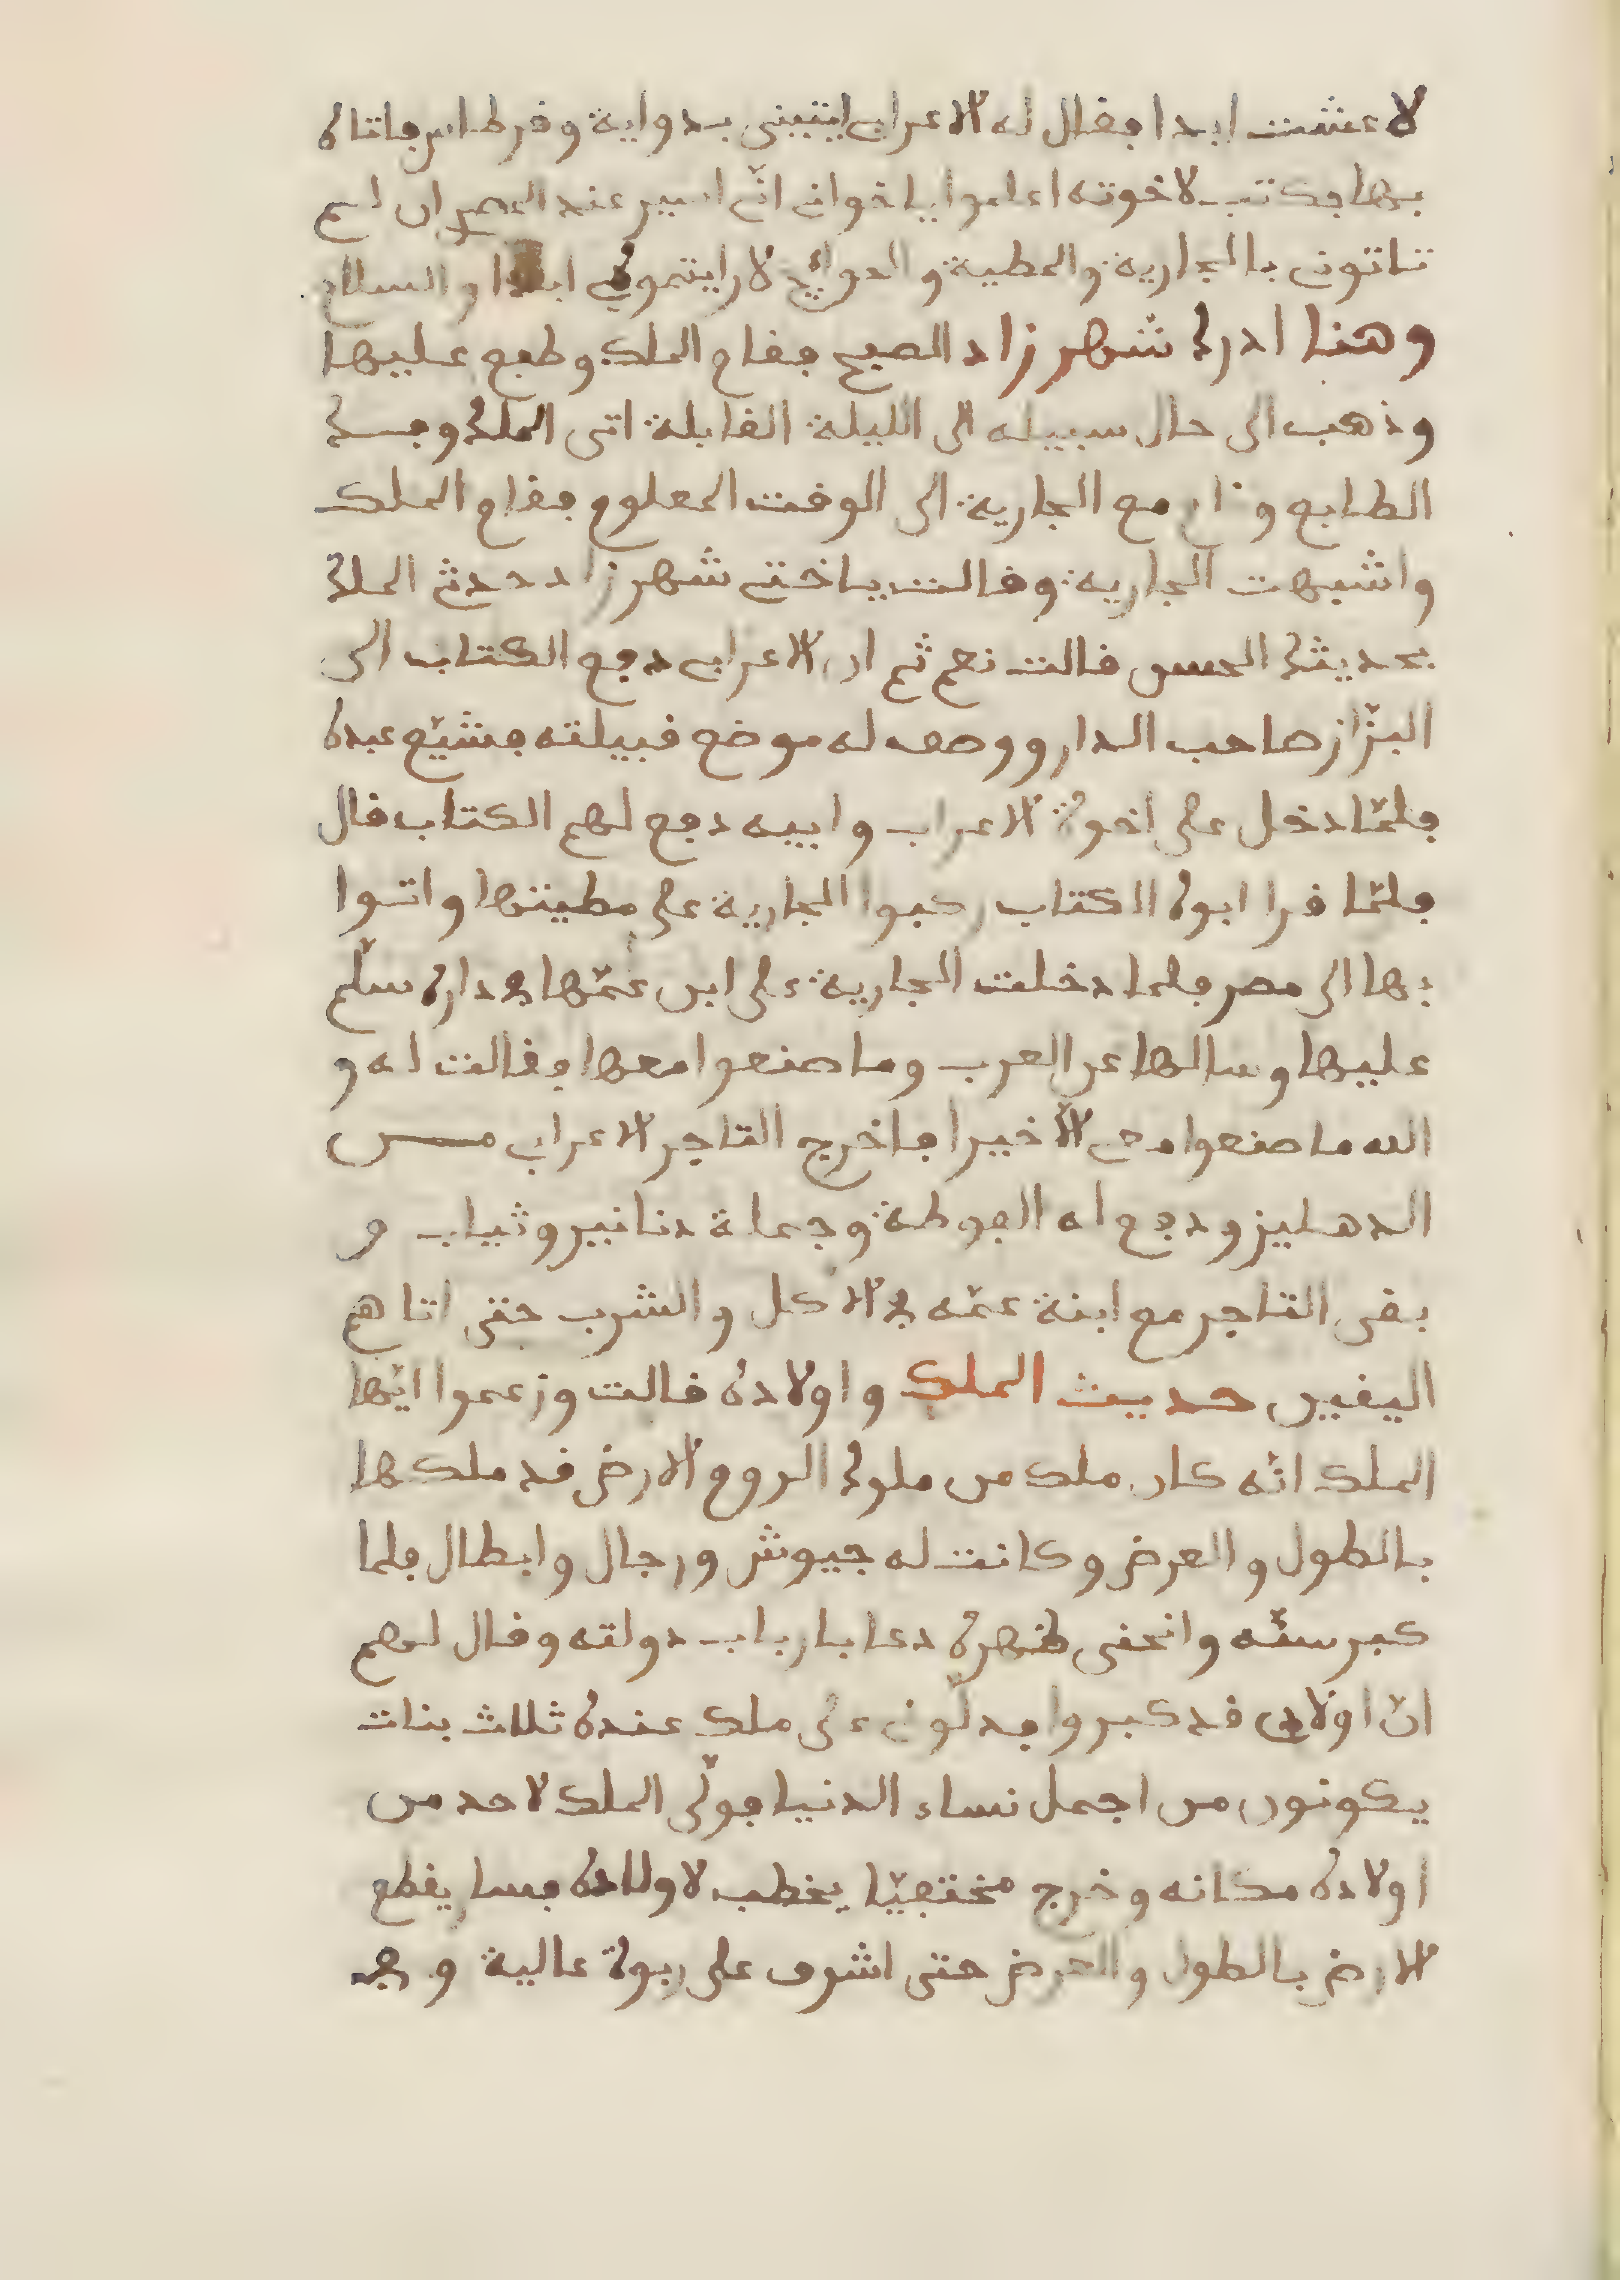 لا عشت ابدا فقال له الاعرابي ايتيني بدواية وقرطاس فاتاه
بها فكتب لاخوته اعلموا ياخواني انّي اسير عند المصري ان لم
تاتوني بالجارية والمطية والحوائج لا رايتموني ابدا والسلام
وهنا ادرك شهرزاد الصبح فقام الملك وطبع عليها
وذهب الى حال سبيله الى الليلة القابلة اتى الملك وفك
الطابع ونام مع الجارية الى الوقت المعلوم فقام الملك
وانتبهت الجارية وقالت ياختي شهرزاد حدث الملك
بحديثك الحسن قالت نعم ثم ان الاعرابي دفع الكتاب الى
البزّاز صاحب الدار ووصف له موضع قبيلته فشيّع عبده
فلمّا دخل على اخوة الاعرابي وابيه دفع لهم الكتاب قال
فلمّا قرا ابوه الكتاب ركبوا الجارية على مطيتها واتوا
بها الى مصر فلما دخلت الجارية على ابن عمّها في داره سلّم
عليها وسالها عن العرب وما صنعوا معها فقالت له و
الله ما صنعوا معي الاّ خيرا فاخرج التاجر الاعرابي مـن
الدهليز ودفع له الفوطة وجملة دنانير وثياب و
بقى التاجر مع ابنة عمّه في الاكل والشرب حتى اتاهم
اليقين حديث الملك واولاده قالت وزعموا ايّها
الملك انّه كان ملك من ملوك الروم الارض قد ملكها
بالطول والعرض وكانت له جيوش ورجال وابطال فلما
كبر سنّه وانحنى ظهره دعا بارباب دولته وقال لهم
انّ اولادي قد كبروا فدلّوني على ملك عنده ثلاث بنات
يكونون من اجمل نساء الدنيا فولّى الملك لاحد من
اولاده مكانه وخرج مختفيّا يخطب لاولاده فسار يقطع
الارض بالطول والعرض حتى اشرف على ربوة عالية وفي